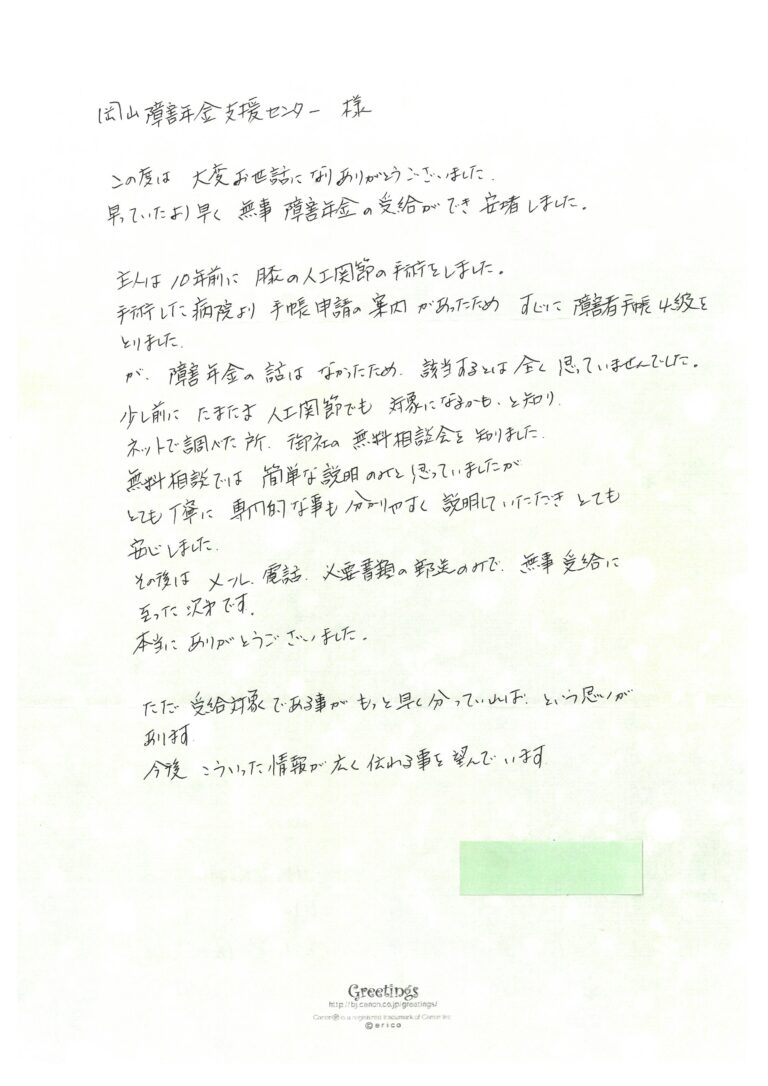 岡山障害年金支援センター 様
この度は 大変お世話になりありがとうございました.
早っていたより早く 無事 障害年金の受給ができ 安堵しました。
主人は 10年前に 膝の人工関節の手術をしました。
手術した病院より 手帳申請の案内があったため すぐに 障害者手帳4級を
とりました.
が、障害年金の話は なかったため、該当するとは全く思っていませんでした。
少し前に たまたま 人工関節でも 対象になるかも、と知り、
ネットで調べた所、御社の 無料相談会を知りました.
無料相談では 簡単な説明のみと思っていましたが
とても丁寧に 専門的な事も 分かりやすく 説明していただき とても
安心しました.
その後は メール、電話、必要書類の郵送のみで、無事 受給に
至った次第です.
本当に ありがとうございました。
ただ 受給対象である事が もっと早く分っていれば、という思いが
あります.
今後 こういった情報が広く伝わる事を望んでいます
Greetings
http://bj.canon.co.jp/greetings/
Canon®is a registered trademark of Canon Inc
©erico